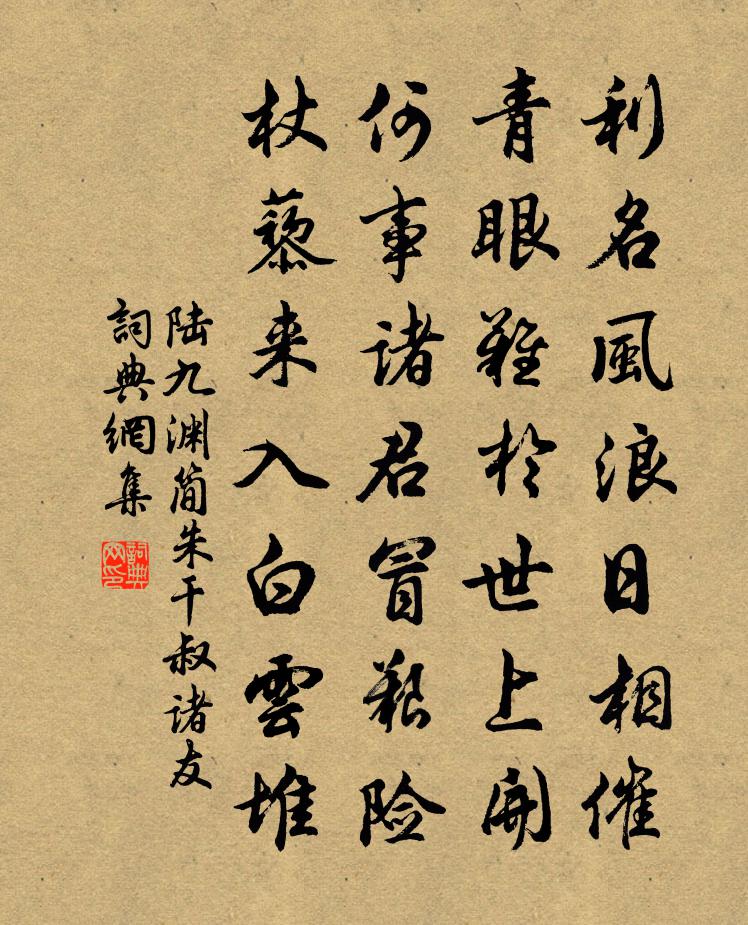 利名風浪日相催
青眼難於世上開
何事诸君冒艱险
杖藜来入白雲堆
陆九渊简朱干叔诸友
詞典網集
詞典网印